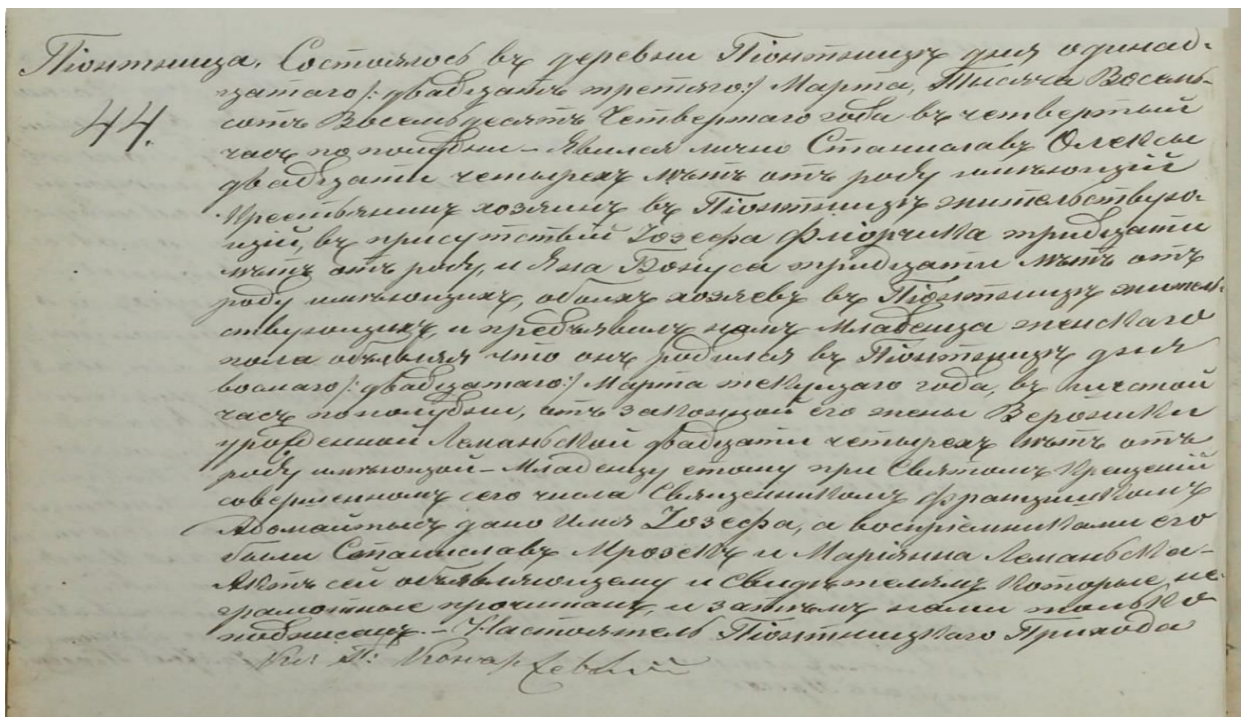 Піонтница. Состоялось въ деревни Піонтницѣ дня одинад-
44.
цатаго /: двадцать третяго:/ Марта, Тысяча Восемь-
сотъ Восемьдесятъ Четвертаго года въ четвертый
часъ пополудни – Явился лично Станиславъ Олексы
двадцати четырехъ лѣтъ отъ роду имѣющій
Крестьянинъ хозяинъ въ Піонтницѣ жительствую-
щій, въ присутствій Іозефа Фліорчика тридцати
лѣтъ отъ роду, и Яна Бонуса тридцати лѣтъ отъ
роду имѣющихъ, обоихъ хозяевъ въ Піонтницѣ житель-
ствующихъ и предъявилъ намъ Младенца женскаго
пола объявляя что онъ родился въ Піонтницѣ дня
восмаго /: двадцатаго:/ Марта текущаго года, въ шестой
часъ пополудни, отъ законной его жены Вероники
урожденной Леманьской двадцати четырехъ лѣтъ отъ
роду имѣющей – Младенцу етому при Святомъ Крещеній
совершенномъ сего числа Священникомъ Францишкомъ
Адомайтысъ дано Имя Іозефа, а воспріемниками его
были Станиславъ Мрозекъ и Маріянна Леманьска –
Актъ сей объявляющему и Свидѣтелямъ которые не-
грамотные прочитанъ, и затѣмъ нами только
подписанъ. – Настоятель Піонтницкаго Прихода
Кс П: